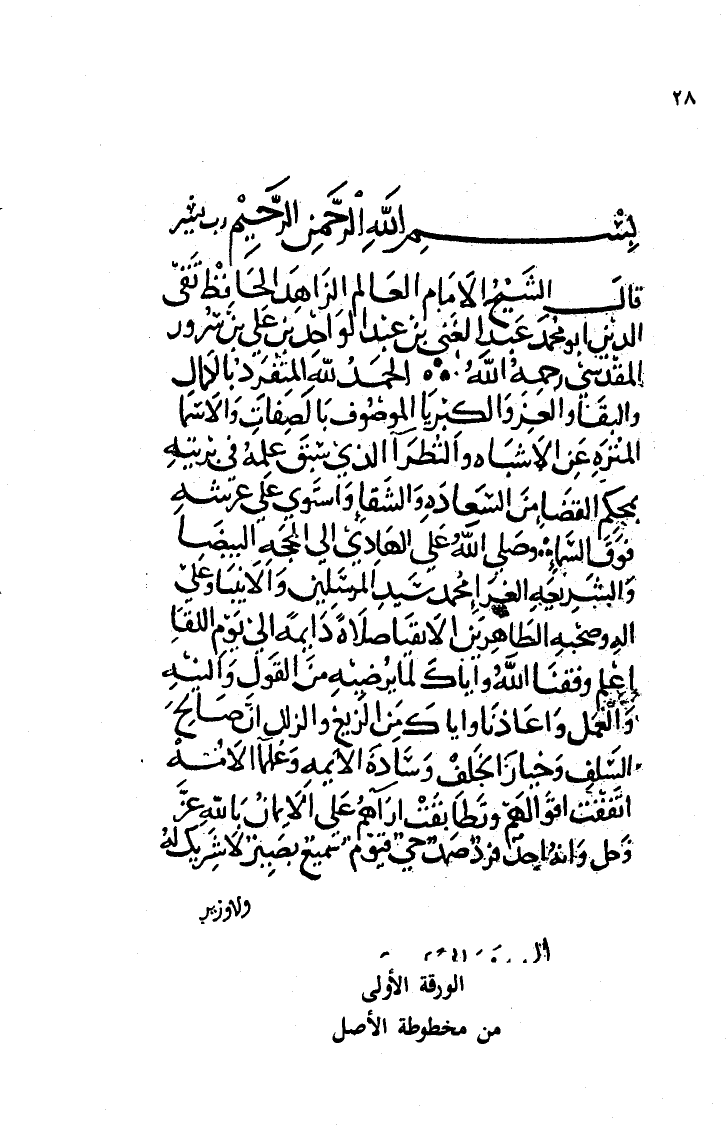 ٢٨
بسم الله الرحمن الرحيم رب يسر
قال الشيخ الامام العالم الزاهد الحافظ تقي
الدين ابو محمد عبد الغني بن عبد الواحد بن علي بن سرور
المقدسي رحمه الله الحمد لله المتفرد بالكمال
والبقا والعز والكبريا الموصوف بالصفات والاسما
المنزه عن الاشباه والنظرا الذي سبق علمه في بريته
بمحكم القضا من السعاده والشقا واستوي علي عرشه
فوق السما وصلي الله علي الهادي الي المحجه البيضا
والشريعه الغرا محمد سيد المرسلين والانبيا وعلي
اله وصحبه الطاهرين الاتقيا صلاة دايمة الي يوم اللقا
اعلم وفقنا الله واياك لما يرضيه من القول والنيه
والعمل واعاذنا واياك من الزيغ والزلل ان صالح
السلف وخيار الخلف وسادة الايمه وعلما الامه
اتفقت اقوالهم وتطابقت اراهم علي الايمان بالله عز
وجل وانه احد فرد صمد حي قيوم سميع بصير لا شريك له
ولا وزير
الورقة الأولى
من مخطوطة الأصل